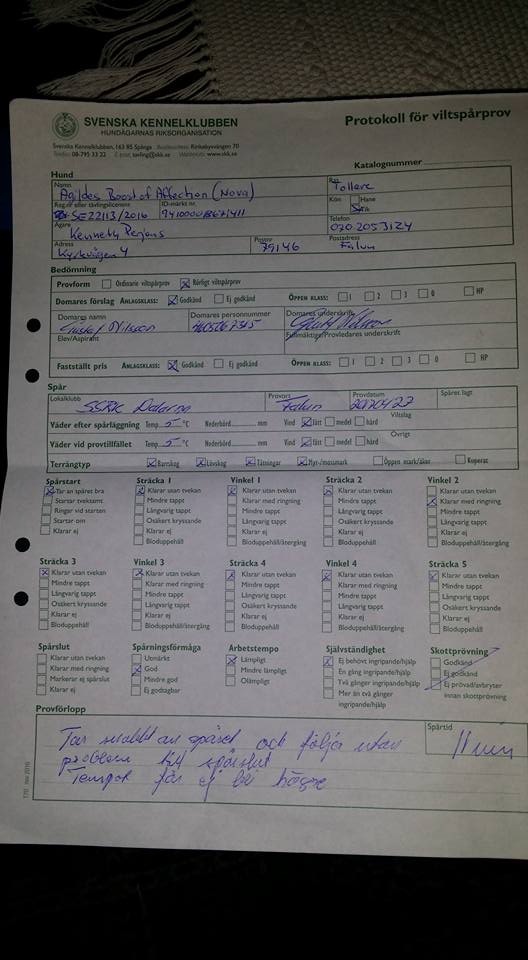 SVENSKA KENNELKLUBBEN
HUNDÄGARNAS RIKSORGANISATION
Protokoll för viltspårprov
Svenska Kennelklubben, 163 85 Spånga Besöksadress Rinkebysvängen 70
Telefon 08-795 33 22 E-post tavling@skk.se Webbplats www.skk.se
Katalognummer
Hund
Namn Ras
Agildes Boost of Affection (Nova) Tollare
Reg.nr eller tävlingslicens ID-märkt nr. Kön Hane
SE22113/2016 Tik
Ägare Telefon
Kenneth 070 2053124
Adress Postnr Postadress
Kyrkvägen 4 79146 Falun
Bedömning
Provform Ordinarie viltspårprov Rörligt viltspårprov
Domares förslag ANLAGSKLASS: Godkänd Ej godkänd ÖPPEN KLASS: 1 2 3 0 HP
Domares namn Domares personnummer Domares underskrift
Gustaf Nilsson
Elev/Aspirant Fullmäktige/Provledares underskrift
Fastställt pris ANLAGSKLASS: Godkänd Ej godkänd ÖPPEN KLASS: 1 2 3 0 HP
Spår
Lokalklubb Provort Provdatum Spåret lagt
SSRK Dalarna Falun 20170427
Väder efter spårläggning Temp. 5 °C Nederbörd mm Vind lätt medel hård Viltslag
Väder vid provtillfället Temp. 5 °C Nederbörd mm Vind lätt medel hård Övrigt
Terrängtyp Barrskog Lövskog Tätningar Myr/mossmark Öppen mark/åker Kuperat
Spårstart Sträcka 1 Vinkel 1 Sträcka 2 Vinkel 2
Tar an spåret bra Klarar utan tvekan Klarar utan tvekan Klarar utan tvekan Klarar utan tvekan
Startar tveksamt Mindre tappt Klarar med ringning Mindre tappt Klarar med ringning
Ringar vid starten Långvarig tappt Mindre tappt Långvarig tappt Mindre tappt
Startar om Osäkert kryssande Långvarig tappt Osäkert kryssande Långvarig tappt
Klarar ej Klarar ej Klarar ej Klarar ej Klarar ej
Bloduppehåll Bloduppehåll/återgång Bloduppehåll Bloduppehåll/återgång
Sträcka 3 Vinkel 3 Sträcka 4 Vinkel 4 Sträcka 5
Klarar utan tvekan Klarar utan tvekan Klarar utan tvekan Klarar utan tvekan Klarar utan tvekan
Mindre tappt Klarar med ringning Mindre tappt Klarar med ringning Mindre tappt
Långvarig tappt Mindre tappt Långvarig tappt Mindre tappt Långvarig tappt
Osäkert kryssande Långvarig tappt Osäkert kryssande Långvarig tappt Osäkert kryssande
Klarar ej Klarar ej Klarar ej Klarar ej Klarar ej
Bloduppehåll Bloduppehåll/återgång Bloduppehåll Bloduppehåll/återgång Bloduppehåll
Spårslut Spårningsförmåga Arbetstempo Självständighet Skottprövning
Klarar utan tvekan Utmärkt Lämpligt Ej behövt ingripande/hjälp Godkänd
Klarar med ringning God Mindre lämpligt En gång ingripande/hjälp Ej godkänd
Markerar ej spårslut Mindre god Olämpligt Två gånger ingripande/hjälp Ej prövad/avbryter
Klarar ej Ej godtagbar Mer än två gånger innan skottprövning
ingripande/hjälp
Provförlopp Spårtid
Tar snabbt an spåret och följer utan 11 min
problem till spårslut
Tempot får ej bli högre